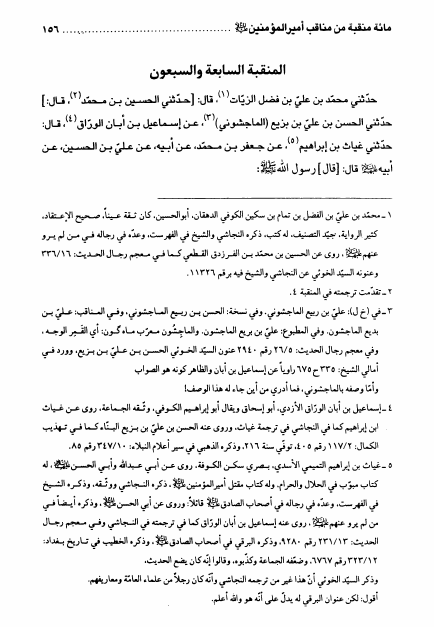 مائة منقبة من مناقب أمير المؤمنين ﷺ ........................................ ١٥٦
المنقبة السابعة والسبعون
حدّثني محمّد بن عليّ بن فضل الزيّات(١)، قال: [حدّثني الحسين بن محمّد(٢)، قال:]
حدّثني الحسن بن عليّ بن بزيع (الماجشوني)(٣)، عن إسماعيل بن أبان الورّاق(٤)، قال:
حدّثني غياث بن إبراهيم(٥)، عن جعفر بن محمّد، عن أبيه، عن عليّ بن الحسين، عن
أبيه قال: [قال] رسول الله ﷺ:
١ ـ محمّد بن عليّ بن الفضل بن تمام بن سكين الكوفي الدهقان، أبوالحسين، كان ثقة عيناً، صحيح الإعتقاد،
كثير الرواية، جيّد التصنيف، له كتب، ذكره النجاشي والشيخ في الفهرست، وعدّه في رجاله في من لم يرو
عنهم، روى عن الحسين بن محمّد بن الفرزدق القطعي كما في معجم رجال الحديث: ٣٣٦/١٦
وعنونه السيّد الخوئي عن النجاشي والشيخ فيه برقم ١١٣٢٦.
٢ ـ تقدّمت ترجمته في المنقبة ٤.
٣ ـ في (خ ل): عليّ بن ربيع الماجشوني. وفي نسخة: الحسن بن ربيع الماجشوني، وفي المناقب: عليّ بن
بديع الماجشون. وفي المطبوع: عليّ بن بريع الماجشون. والماجِشُون معرّب ماه گون: أي القمر الوجه،
وفي معجم رجال الحديث: ٢٦/٥ رقم ٢٩٤٠ عنون السيّد الخوئي الحسن بن عليّ بن بزيع، وورد في
أمالي الشيخ: ٣٣٥ ح٦٧٥ راوياً عن إسماعيل بن أبان والظاهر كونه هو الصواب
وأمّا وصفه بالماجشوني، فما أدري من أين جاء له هذا الوصف!
٤ ـ إسماعيل بن أبان الورّاق الأزدي، أبو إسحاق ويقال أبو إبراهيم الكوفي، وثّقه الجماعة، روى عن غياث
ابن إبراهيم كما في النجاشي في ترجمة غياث، وروى عنه الحسن بن عليّ بن بزيع البنّاء كما في تهذيب
الكمال: ١١٧/٢ رقم ٤٠٥، توفّي سنة ٢١٦، وذكره الذهبي في سير أعلام النبلاء: ٣٤٧/١٠ رقم ٨٥.
٥ ـ غياث بن إبراهيم التميمي الأسدي، بصري سكن الكوفة، روى عن أبي عبدالله وأبي الحسن، له
كتاب مبوّب في الحلال والحرام، وله كتاب مقتل أميرالمؤمنين، ذكره النجاشي ووثّقه، وذكره الشيخ
في الفهرست، وعدّه في رجاله في أصحاب الصادق قائلاً: وروى عن أبي الحسن، وذكره أيضاً في
من لم يرو عنهم، روى عنه إسماعيل بن أبان الورّاق كما في ترجمته في النجاشي وفي معجم رجال
الحديث: ٢٣١/١٣ رقم ٩٢٨٠، وذكره البرقي في أصحاب الصادق، وذكره الخطيب في تاريخ بغداد:
٣٢٣/١٢ رقم ٦٧٦٧، وضعّفه الجماعة وكذّبوه، وقالوا إنّه كان يضع الحديث،
وذكر السيّد الخوئي أنّ هذا غير من ترجمه النجاشي وأنّه كان رجلاً من علماء العامّة ومعاريفهم.
أقول: لكن عنوان البرقي له يدلّ على أنّه هو والله أعلم.